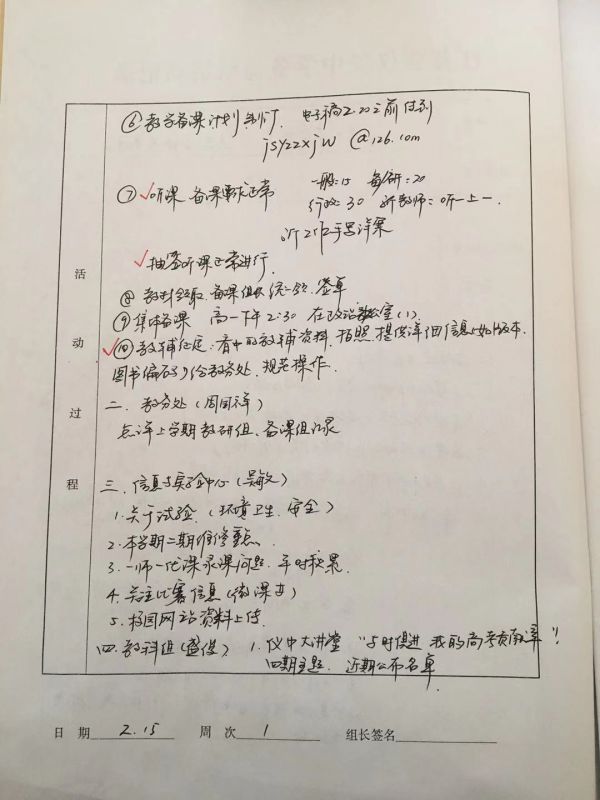 ⑥ 教学备课计划制订. 电子稿2.20之前传到
jsyzzxjw @126.com
⑦ √听课 备课要求正常 一般:15 备研:20
行政:30 新教师:听一上一.
听2作2手写详案
√抽签听课正常进行.
⑧ 教材领取. 备课组长统一领. 签单
⑨ 集体备课 高一下午2:30 在政治办公室(1).
√⑩ 教辅征定. 看中的教辅资料. 拍照. 提供详细信息(如版本.
图书编码)给教务处. 规范操作.
二. 教务处(周国祥)
点评上学期教研组、备课组记录
三. 信息与实验中心(吴敏)
1. 关于试验. (环境卫生. 安全)
2. 本学期二期维修重点.
3. 一师一优课录课问题. 平时积累.
4. 关注比赛信息(微课等)
5. 校园网站资料上传.
四. 教科组(盛俊) 1. 仪中大讲堂 "与时俱进 我的高考贡献率"!
四期主题. 近期公布名单
活
动
过
程
日 期 2.15 周 次 1 组长签名